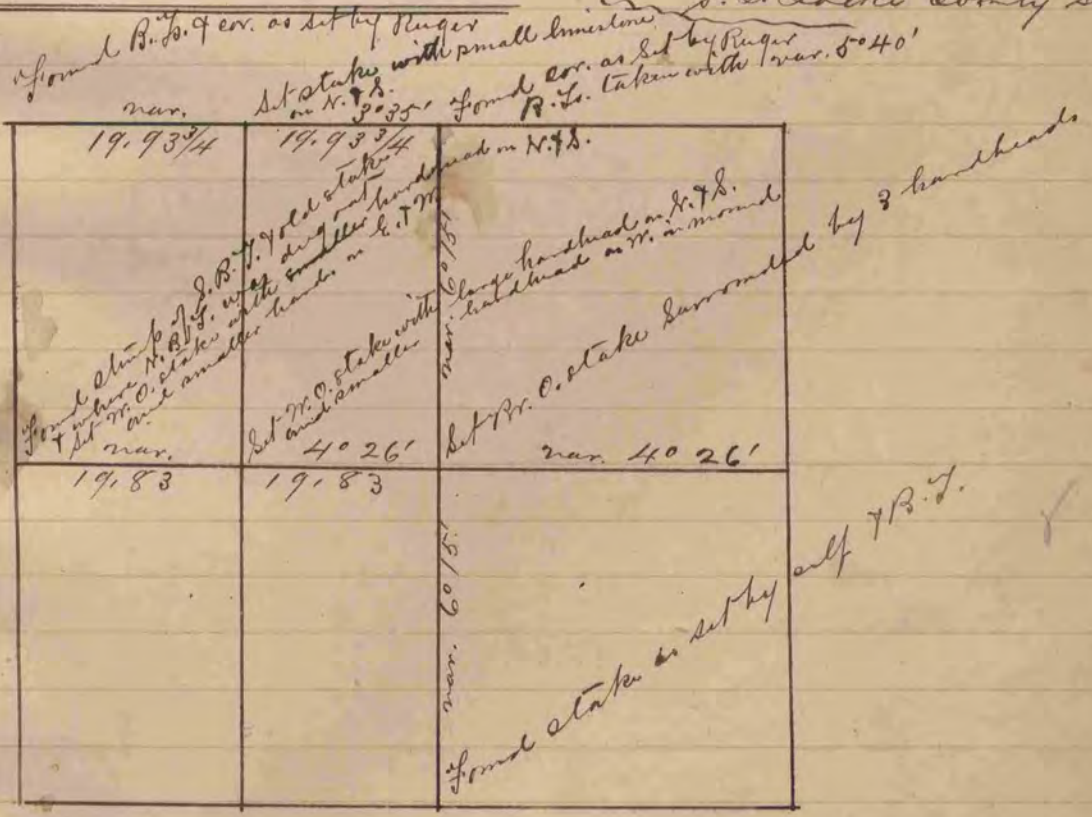 County
Found B. Ts. & cor. as set by Ruger
Set stake with small limestone
on N. & S.
Found cor. as set by Ruger
B. Ts. taken with var. 5° 40'
var. 3° 35'
19.93 3/4 19.93 3/4
Found stump of S. B. T. & old stake
& where N. B. T. was dug out
Set W. O. stake with smaller hardhead on N. & S.
and smaller hardh. on E. & W.
Set W. O. stake with large hardhead on N. & S.
and smaller hardhead on W. in mound
Set W. O. stake surrounded by 3 hardheads
var. 4° 26' var. 4° 26'
19.83 19.83
var.
var.
Found stake as set by self & B. T.